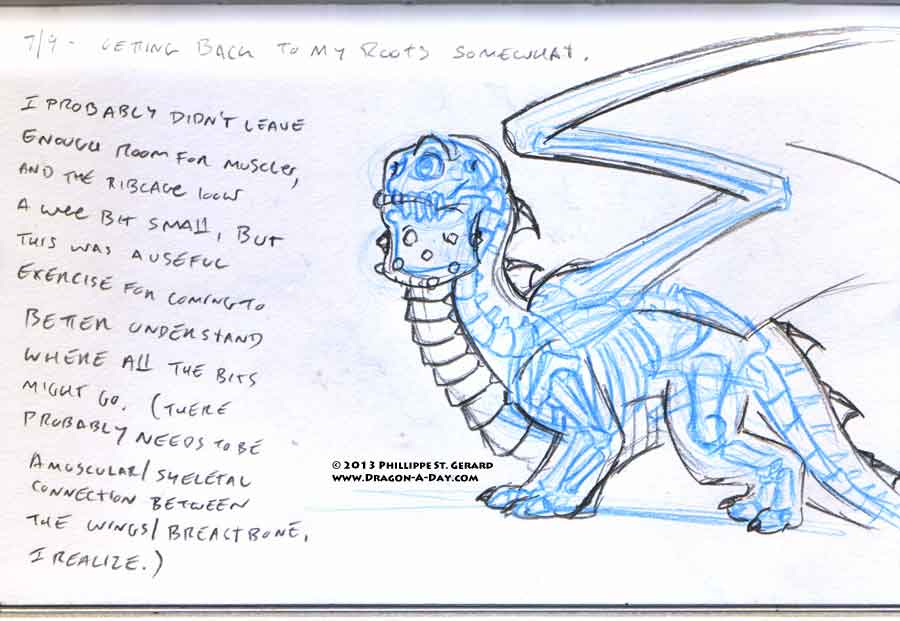 7/4 - GETTING BACK TO MY ROOTS SOMEWHAT.
I PROBABLY DIDN'T LEAVE
ENOUGH ROOM FOR MUSCLES,
AND THE RIBCAGE LOOKS
A WEE BIT SMALL, BUT
THIS WAS A USEFUL
EXERCISE FOR COMING TO
BETTER UNDERSTAND
WHERE ALL THE BITS
MIGHT GO. (THERE
PROBABLY NEEDS TO BE
A MUSCULAR/SKELETAL
CONNECTION BETWEEN
THE WINGS/BREASTBONE,
I REALIZE.)
© 2013 PHILLIPPE ST. GERARD
WWW.DRAGON-A-DAY.COM